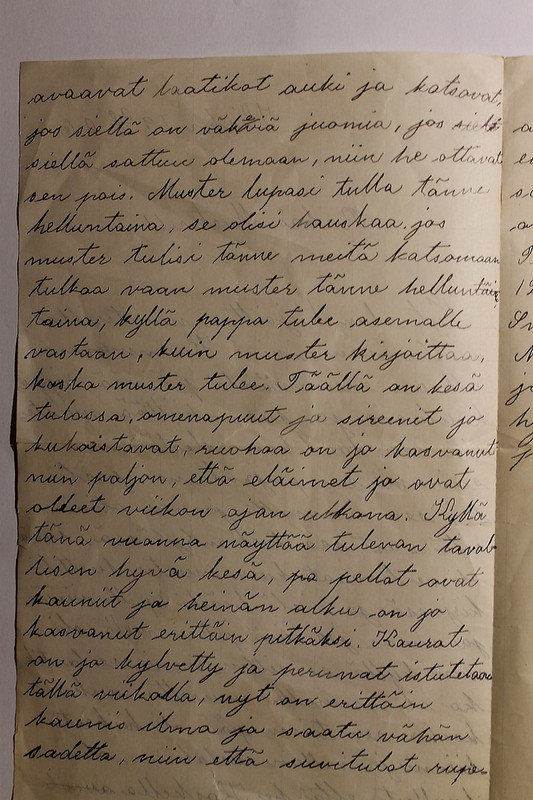 avaavat laatikot auki ja katsovat,
jos siellä on väkeviä juomia, jos
siellä sattuu olemaan, niin he ottavat
sen pois. Muster lupasi tulla tänne
helluntaina, se olisi hauskaa. jos
muster tulisi tänne meitä katsomaan
tulkaa vaan muster tänne helluntain
taina, kyllä pappa tulee asemalle
vastaan, kuin muster kirjoittaa,
koska muster tulee. Täällä on kesä
tulossa, omenapuut ja sireenit jo
kukoistavat, ruohoa on jo kasvanut
niin paljon, että eläimet jo ovat
olleet viikon ajan ulkona. Kyllä
tänä vuonna näyttää tulevan taval-
lisen hyvä kesä, pa pellot ovat
kauniit ja heinän alku on jo
kasvanut erittäin pitkäksi. Kaurat
on jo kylvetty ja perunat istutetaan
tällä viikolla, nyt on erittäin
kaunis ilma ja saatu vähän
sadetta, niin että suvitulot rupe-